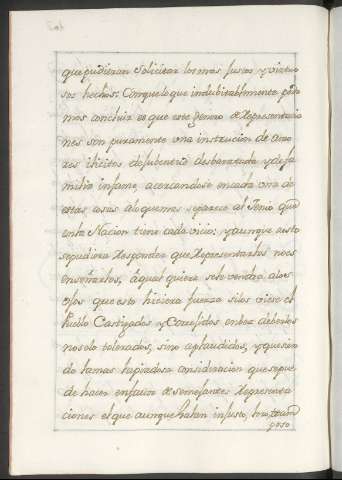 que pudieran solicitar los mas justos y virtuo
sos hechos: Conque lo que indubitablemente pode
mos concluir es que este genero de Representacio
nes son puramente una instrucion de amo
res ilicitos de jubentud desbaratada y de fa
milia infame, acercandose encada una de
estas cosas alo que mas se parece al Genio que
enla Nacion tiene cada vicio; y aunque aesto
se pudiera Responder que Representarlos noes
enseñarlos, á qual quiera sele vendra alos
ojos que esto hiciera fuerza silos viese el
Pueblo Castigados y Corregidos enbez deberlos
nosolo tolerados, sino aplaudidos, y que sien
do la mas piadosa consideracion que se pue
de hacer en favor de semejantes Representa
ciones el que aunque hablan injusto,
poso